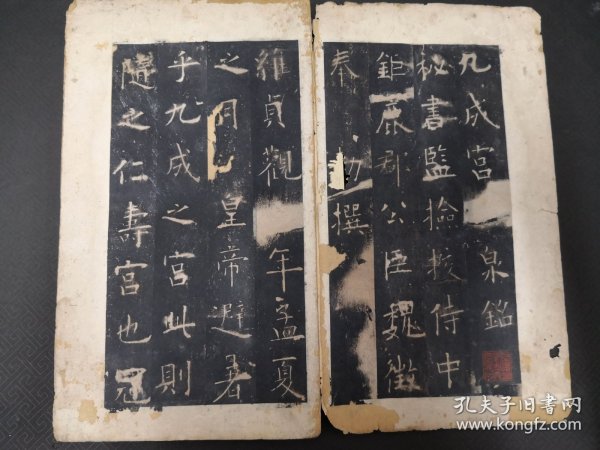 九成宮泉銘
秘書監撿挍侍中
鉅鹿郡公臣魏徵
奉勑撰
維貞觀年孟夏
之月皇帝避暑
乎九成之宮此則
隨之仁壽宮也冠
孔夫子旧书网
www.kongfz.com